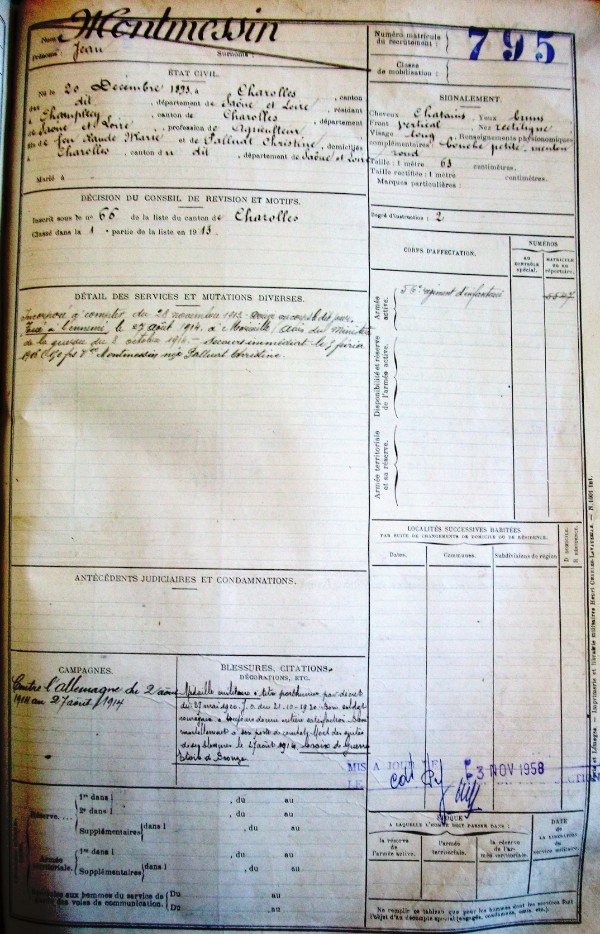 Nom : Montmessin
Prénoms : Jean Surnoms :
Numéro matricule du recrutement : 795
Classe de mobilisation :
ÉTAT CIVIL.
Né le 20 Décembre 1893, à Charolles, canton
dudit, département de Saône et Loire, résidant
à Champlecy, canton de Charolles, département
de Saône et Loire, profession de Agriculteur
fils de feu Claude Marie et de Palluat Christine, domiciliés
à Charolles, canton du dit, département de Saône et Loire
Marié à
DÉCISION DU CONSEIL DE REVISION ET MOTIFS.
Inscrit sous le n° 66 de la liste du canton de Charolles
Classé dans la 1 partie de la liste en 1913.
DÉTAIL DES SERVICES ET MUTATIONS DIVERSES.
Incorporé à compter du 28 novembre 1913.
Tué à l'ennemi le 27 août 1914 à Avis du Ministre
de la guerre du 3 octobre 1914 — Secours immédiat le 5 février
Montmessin née Palluat Christine.
ANTÉCÉDENTS JUDICIAIRES ET CONDAMNATIONS.
CAMPAGNES.
Contre l'Allemagne du 2 août
1914 au 27 août 1914
BLESSURES, CITATIONS,
DÉCORATIONS, ETC.
Médaille militaire à titre posthume par décret
du J.O. du 21-10-1920. Bon soldat
courageux a toujours donné entière satisfaction. Tombé
mortellement à son poste de combat. Mort des suites
de ses blessures le 27 août 1914. Croix de Guerre
Etoile de Bronze.
1re dans l , du au
Réserve.... 2e dans l , du au
Supplémentaires dans l , du au
Armée territoriale. 1re dans l , du au
Supplémentaires dans l , du au
Périodes aux hommes du service de Du au
garde des voies de communication. Du au
SIGNALEMENT.
Cheveux Chatains Yeux bruns
Front vertical Nez rectiligne
Visage long Renseignements physionomiques
complémentaires bouche petite, menton
rond
Taille : 1 mètre 63 centimètres.
Taille rectifiée : 1 mètre centimètres.
Marques particulières :
Degré d'instruction : 2
CORPS D'AFFECTATION.
NUMÉROS
AU CONTRÔLE spécial.
MATRICULE ou au répertoire.
Armée active.
régiment d'infanterie
Disponibilité et réserve de l'armée active.
Armée territoriale et sa réserve.
LOCALITÉS SUCCESSIVES HABITÉES
PAR SUITE DE CHANGEMENTS DE DOMICILE OU DE RÉSIDENCE.
Dates. Communes. Subdivisions de région
D DOMICILE. R RÉSIDENCE.
MIS A JOUR
LE
3 NOV 1958
ÉPOQUE
A LAQUELLE L'HOMME DOIT PASSER DANS :
la réserve de l'armée active.
l'armée territoriale.
la réserve de l'armée territoriale.
DATE de LA LIBÉRATION du service militaire.
Ne remplir ce tableau que pour les hommes dont les services font
l'objet d'un décompte spécial (engagés, condamnés, omis, etc.).
Imprimerie et librairie militaires Henri Charles-Lavauzelle